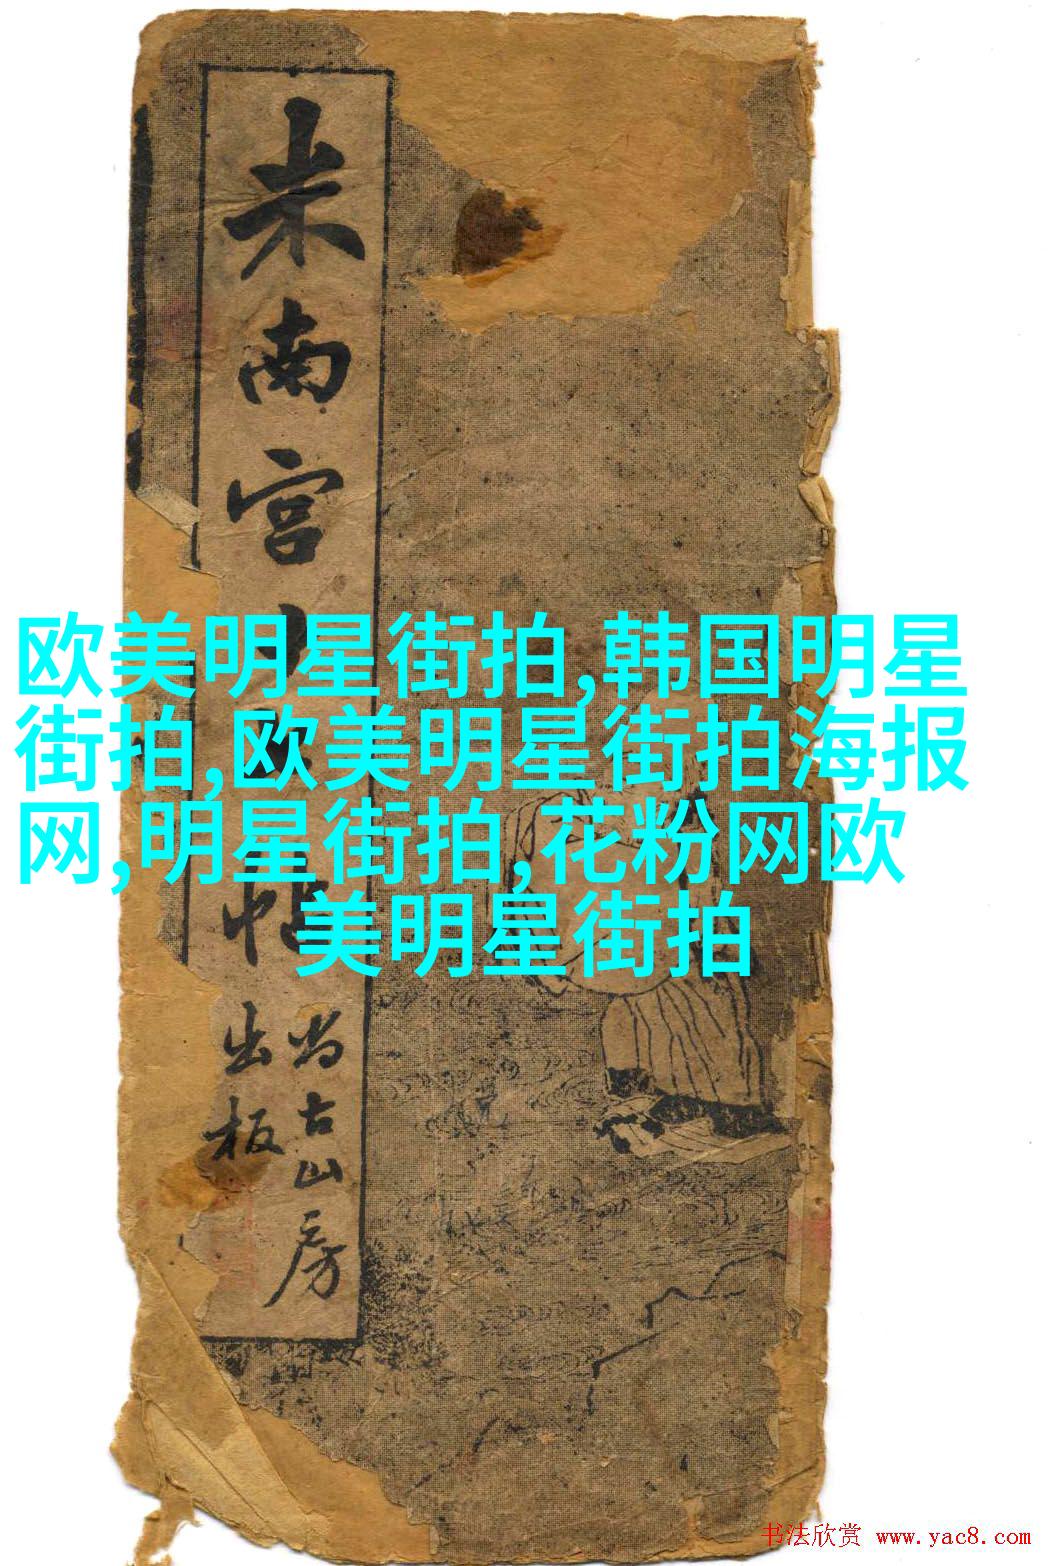 米南宫
帖
尚古山房
出板
欧美明星街拍,韩国明星
街拍,欧美明星街拍海报
网,明星街拍,花粉网欧
美明星街拍
书法欣赏 www.yac8.com